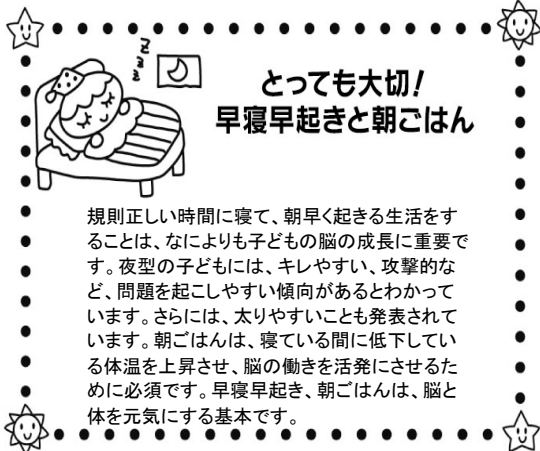 zzz
とっても大切!
早寝早起きと朝ごはん
規則正しい時間に寝て、朝早く起きる生活をす
ることは、なによりも子どもの脳の成長に重要で
す。夜型の子どもには、キレやすい、攻撃的な
ど、問題を起こしやすい傾向があるとわかって
います。さらには、太りやすいことも発表されて
います。朝ごはんは、寝ている間に低下してい
る体温を上昇させ、脳の働きを活発にさせるた
めに必須です。早寝早起き、朝ごはんは、脳と
体を元気にする基本です。